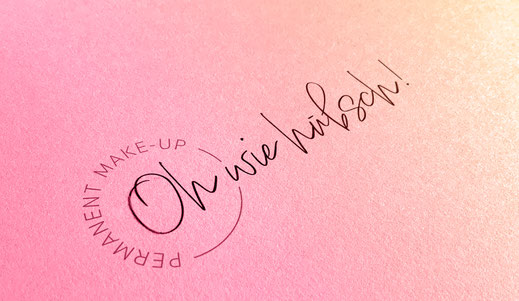 PERMANENT MAKE-UP
Oh wie hübsch!